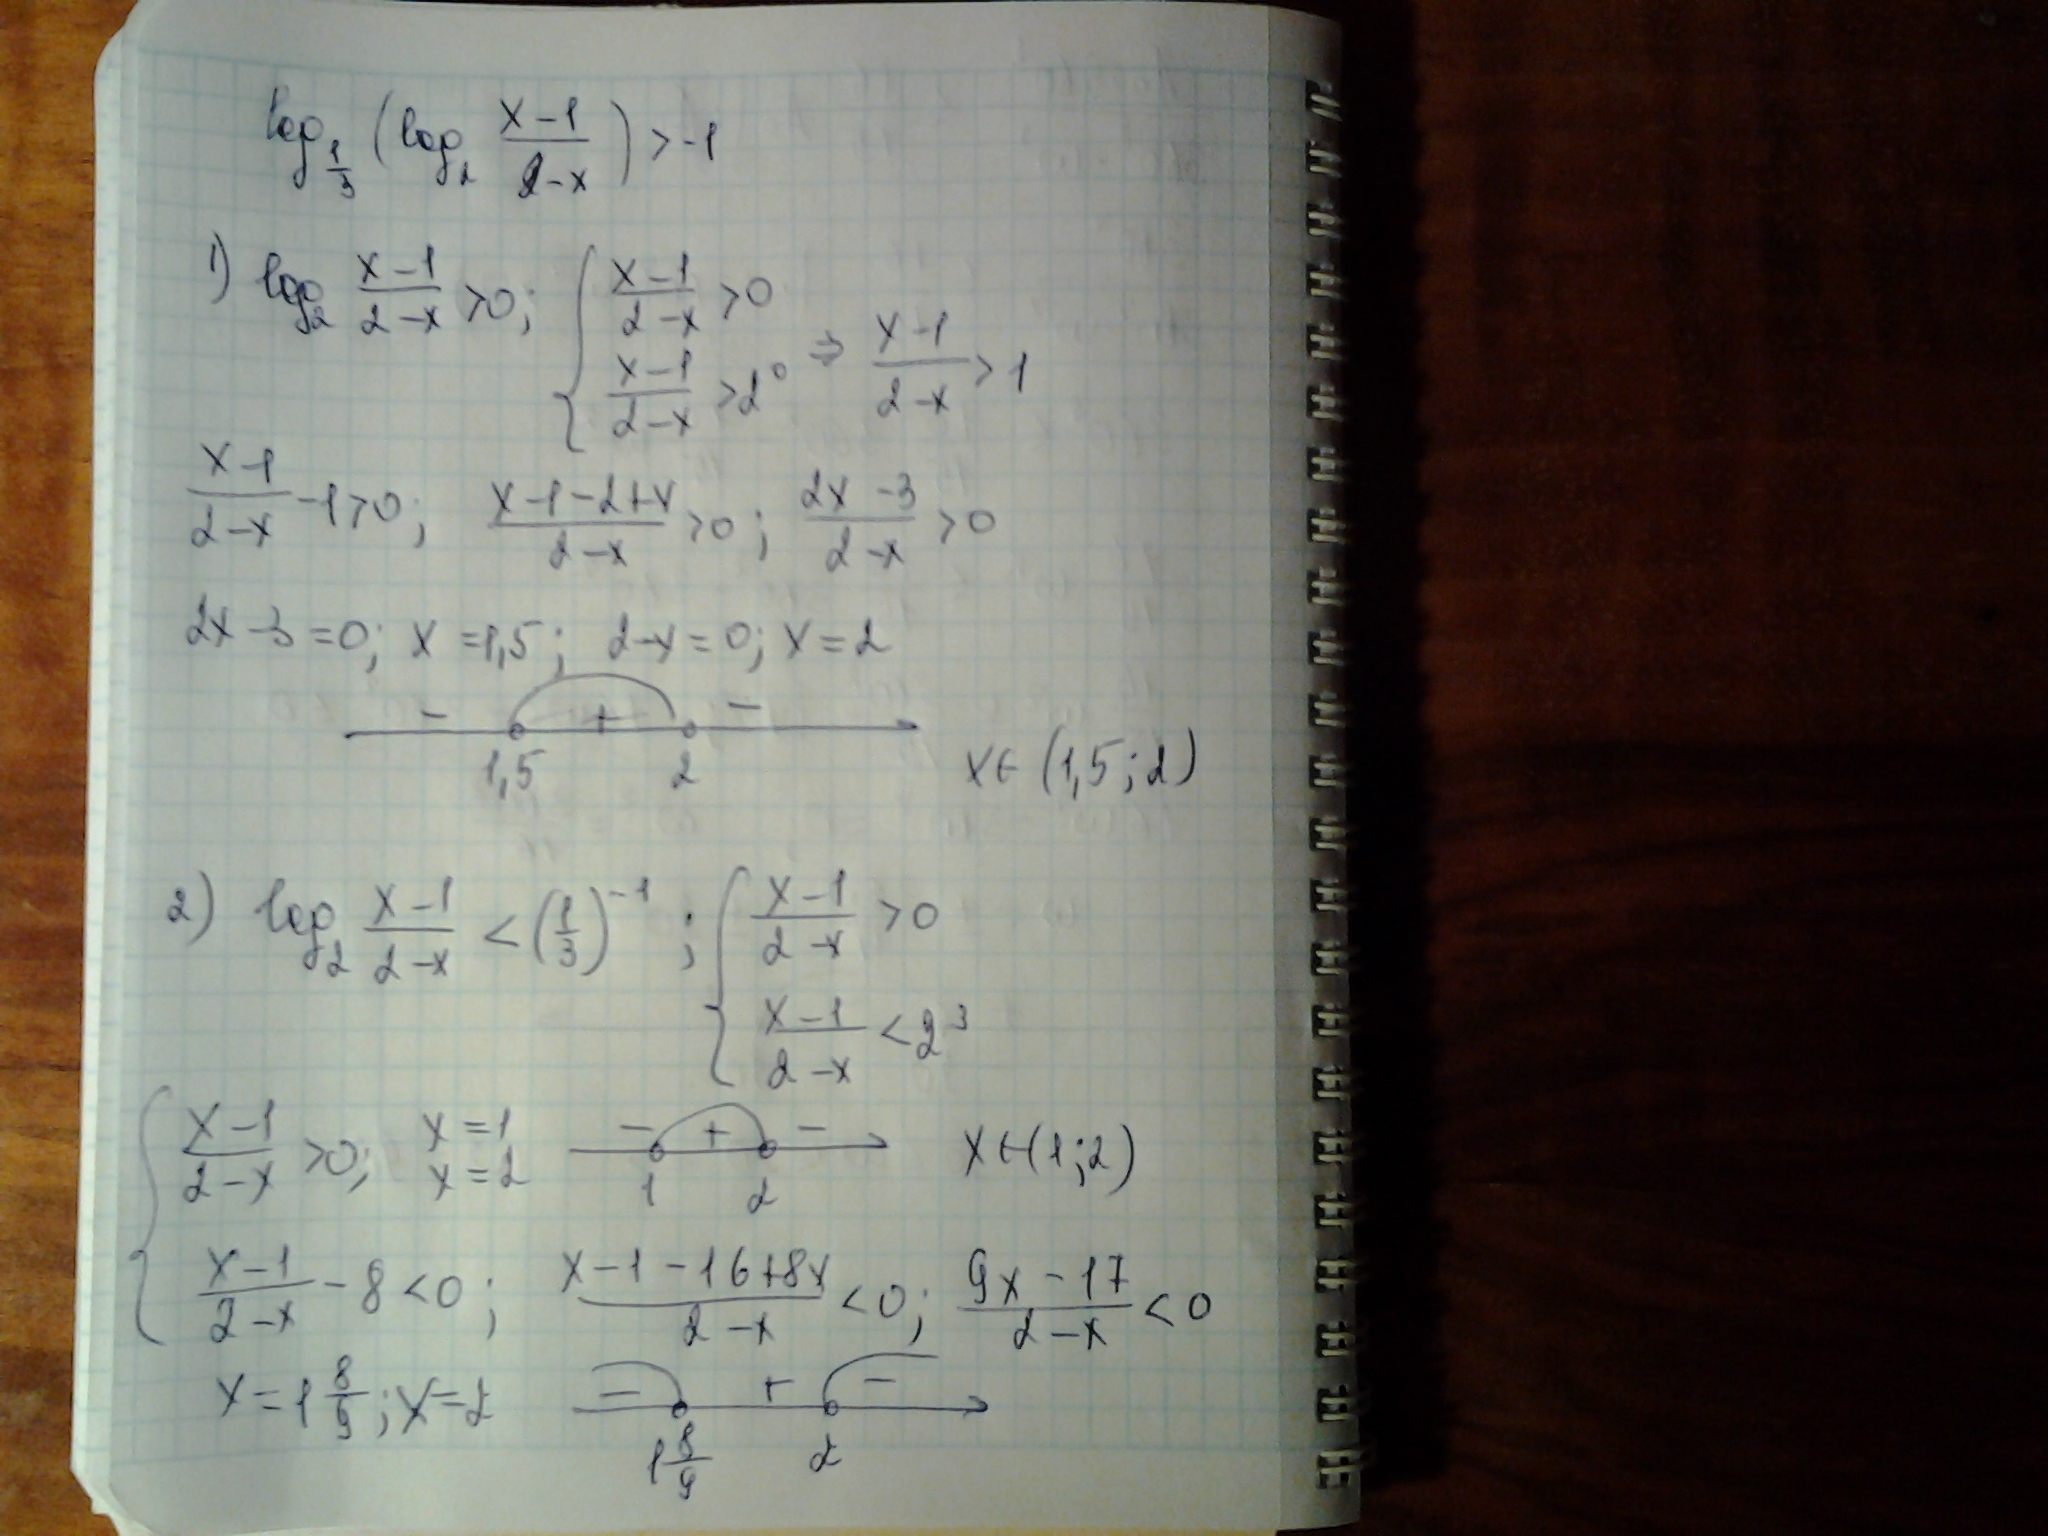 log_{1/3} (log_2 \frac{x-1}{2-x}) > -1
1) log_2 \frac{x-1}{2-x} > 0; { \frac{x-1}{2-x} > 0
\frac{x-1}{2-x} > 2^0 ⇒ \frac{x-1}{2-x} > 1
\frac{x-1}{2-x} - 1 > 0; \frac{x-1-2+x}{2-x} > 0; \frac{2x-3}{2-x} > 0
2x-3=0; x=1,5; 2-x=0; x=2
- + -
1,5 2 x∈(1,5;2)
2) log_2 \frac{x-1}{2-x} < (\frac{1}{3})^{-1}; { \frac{x-1}{2-x} > 0
\frac{x-1}{2-x} < 2^3
{ \frac{x-1}{2-x} > 0; x=1 x=2 - + - x∈(1;2)
1 2
\frac{x-1}{2-x} - 8 < 0; \frac{x-1-16+8x}{2-x} < 0; \frac{9x-17}{2-x} < 0
x=1\frac{8}{9}; x=2 - + -
1\frac{8}{9} 2